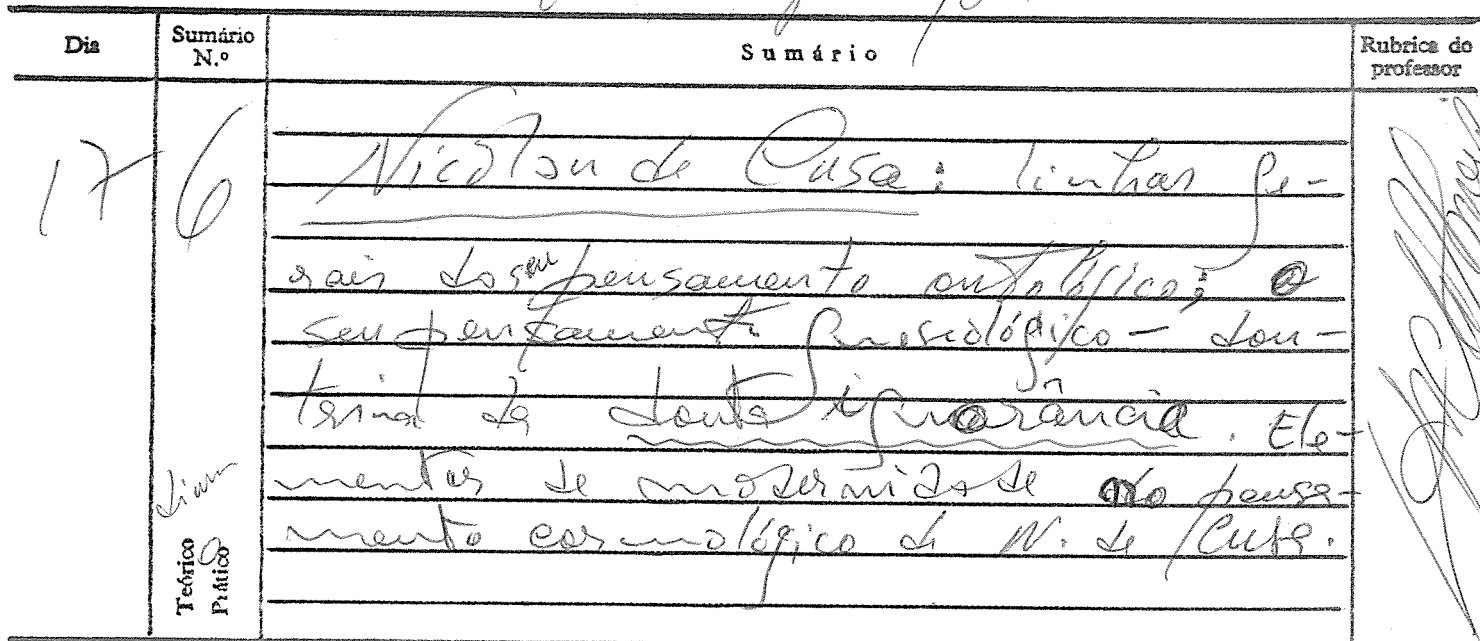 Dia Sumário N.º Sumário Rubrica do professor
17 6 Nicolau de Cusa: linhas ge-
rais do seu pensamento ontológico; o
seu pensamento gnosiológico — dou-
trina da douta ignorância. Ele-
mentos de modernidade no pensa-
mento cosmológico de N. de Cusa.
Teórico
Prático